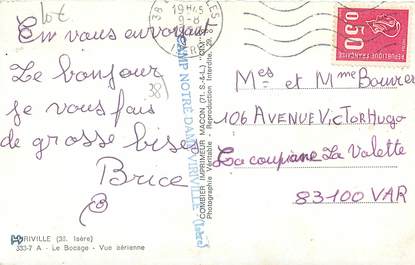 lot
En vous envoyant
Le bonjour
je vous fais
de grosse bises
Brice
B
38
VIRIVILLE (38. Isère)
333-7 A - Le Bocage - Vue aérienne
CAMP NOTRE DAME VIRIVILLE (Isère)
COMBIER IMPRIMEUR MACON (71. S.-&-L.) "CIM"
Photographie Véritable - Reproduction Interdite
38
19H45
9-8
0,50
REPUBLIQUE FRANCAISE
Mes et Mme Bouvier
106 AVENUE VICTOR HUGO
La coupiane La Valette
83100 VAR